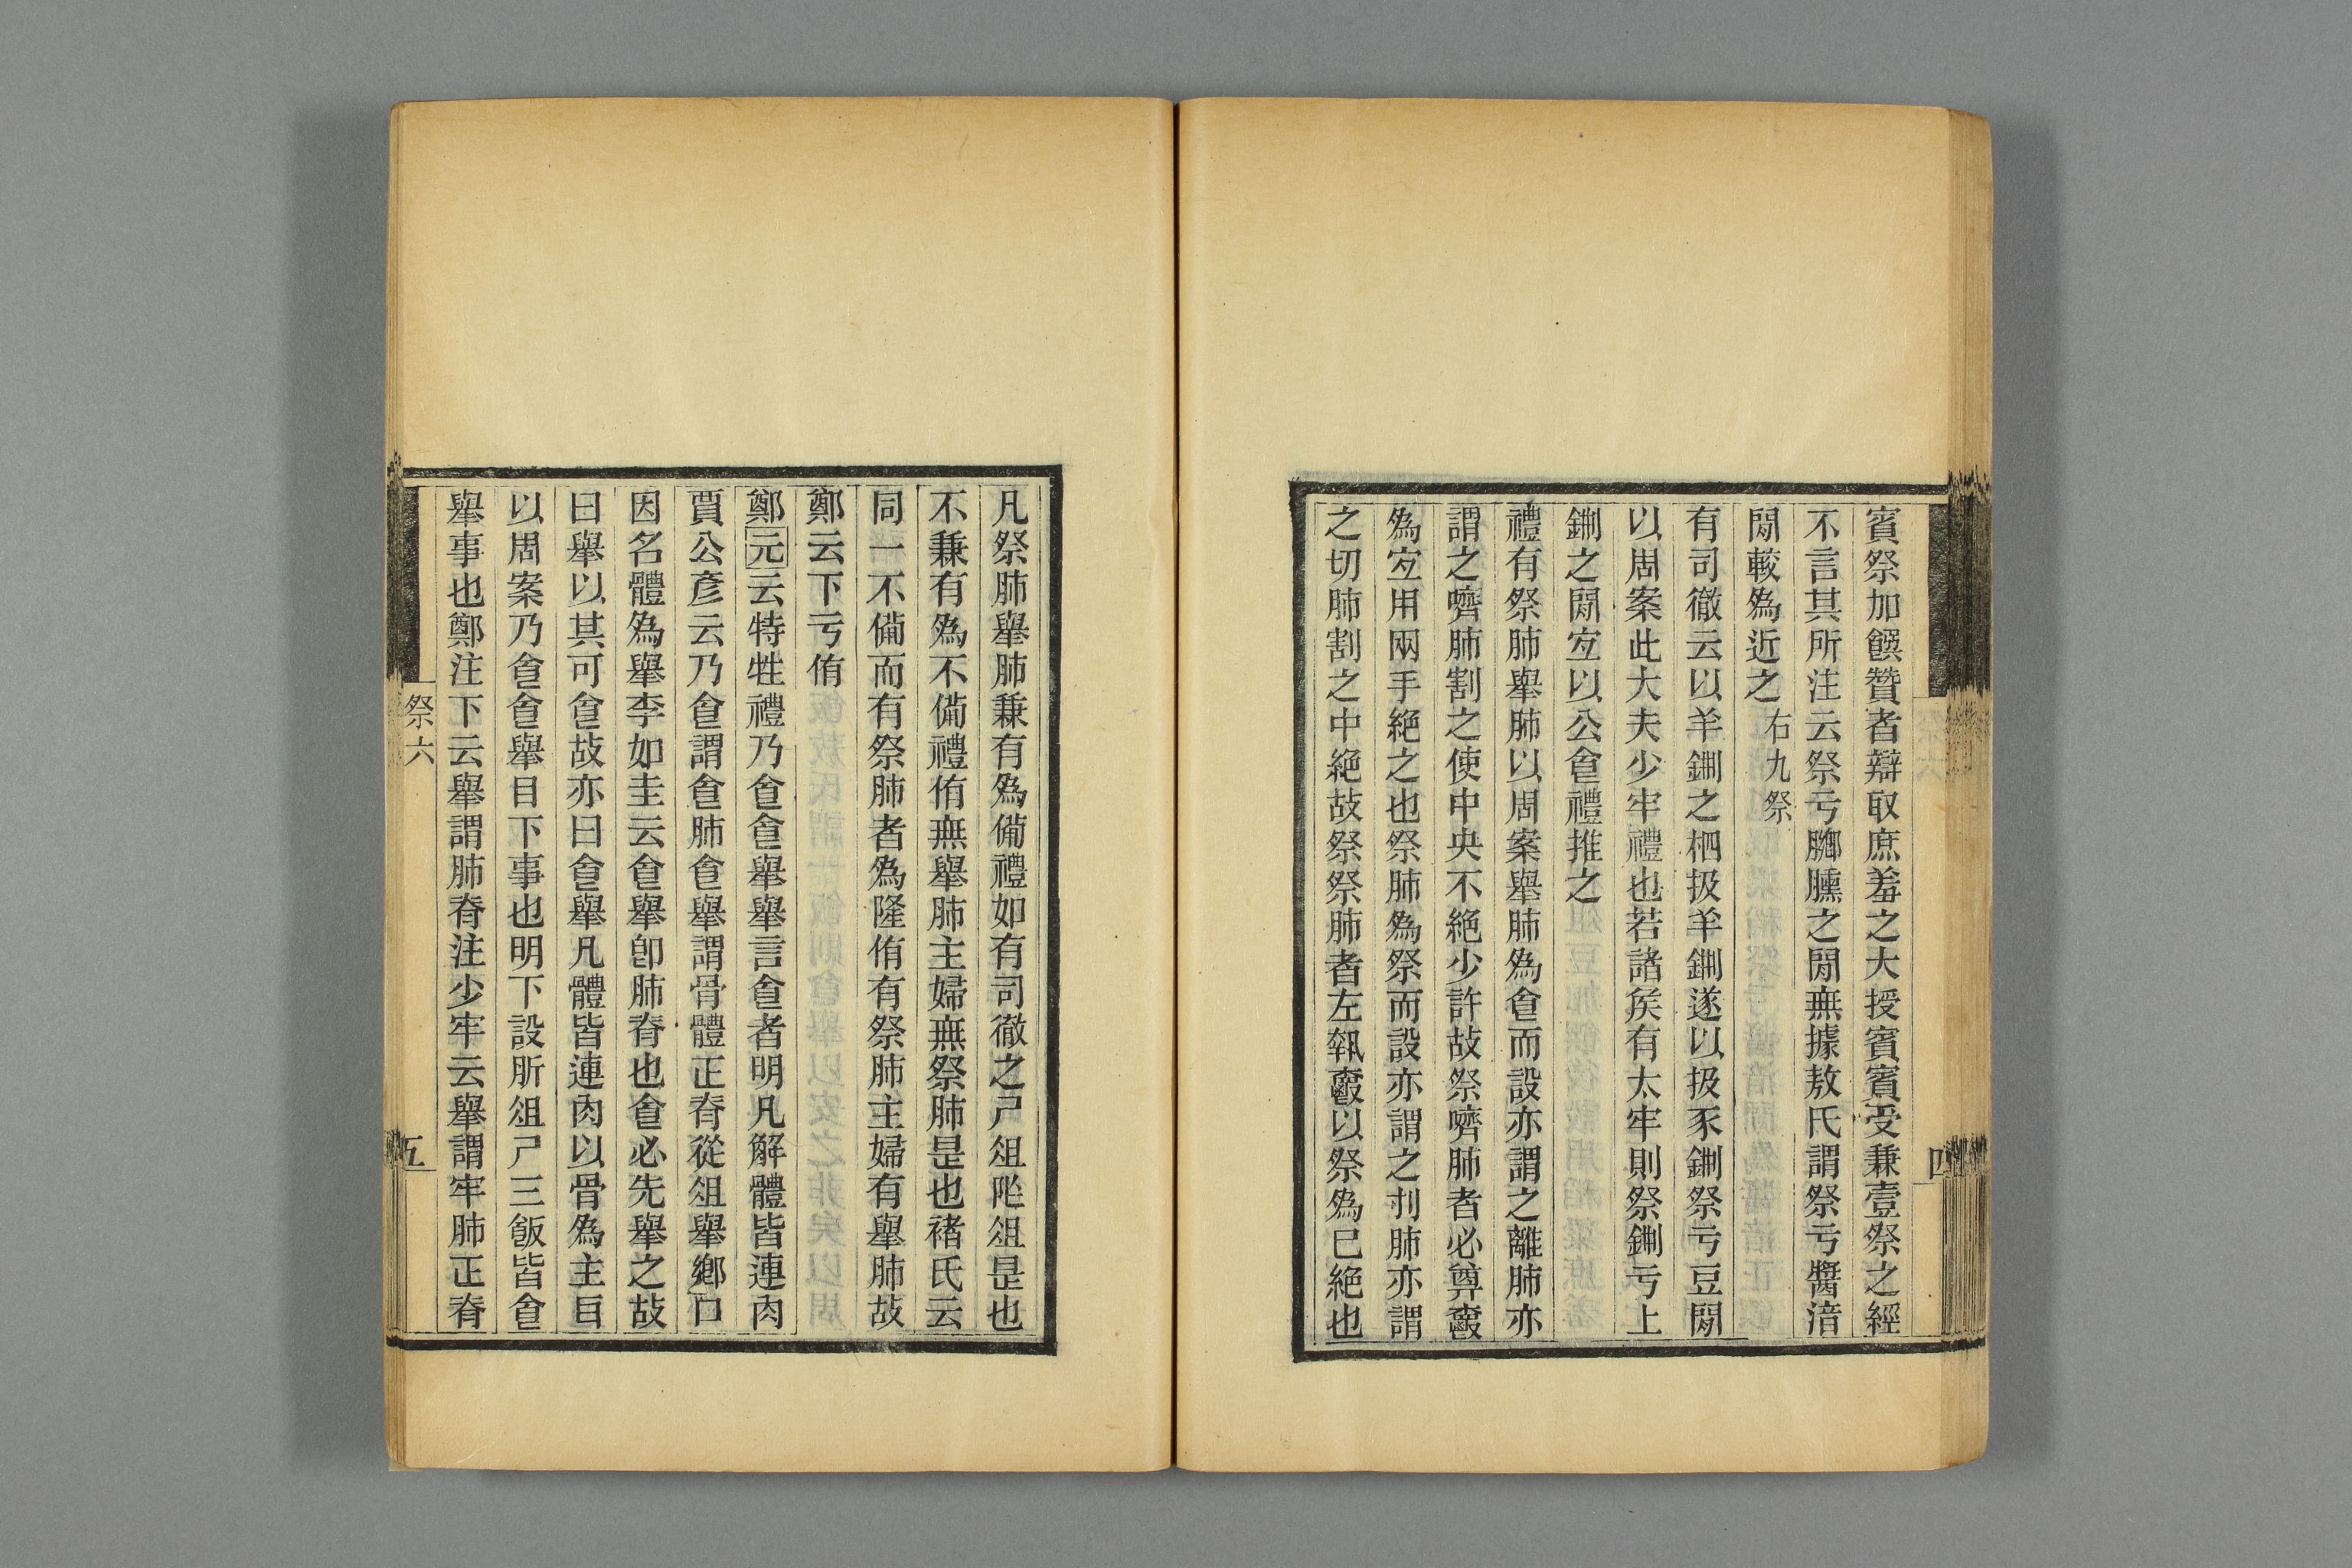 賓祭加饌贊者辯取庶羞之大授賓賓受兼壹祭之經
不言其所注云祭亏膷臐之閒無據敖氏謂祭亏醬湆
閒較爲近之 右九祭
有司徹云以羊鉶之柶扱羊鉶遂以扱豕鉶祭亏豆閒
以周案此大夫少牢禮也若諸矦有太牢則祭鉶亏上
鉶之閒宐以公㑹禮推之
禮有祭肺舉肺以周案舉肺爲㑹而設亦謂之離肺亦
謂之嚌肺割之使中央不絕少許故祭嚌肺者必奠爵
爲宐用兩手絕之也祭肺爲祭而設亦謂之刌肺亦謂
之切肺割之中絕故祭祭肺者左執爵以祭爲已絕也
四
凡祭肺舉肺兼有爲僃禮如有司徹之尸俎阼俎是也
不兼有爲不僃禮侑無舉肺主婦無祭肺是也褚氏云
同一不僃而有祭肺者爲隆侑有祭肺主婦有舉肺故
鄭云下亏侑
鄭元云特牲禮乃㑹㑹舉舉言㑹者明凡解體皆連肉
賈公彥云乃㑹謂㑹肺㑹舉謂骨體正脊從俎舉鄉口
因名體爲舉李如圭云㑹舉卽肺脊也㑹必先舉之故
曰舉以其可㑹故亦曰㑹舉凡體皆連肉以骨爲主㠯
以周案乃㑹㑹舉目下事也明下設肵俎尸三飯皆㑹
舉事也鄭注下云舉謂肺脊注少牢云舉謂牢肺正脊
祭六
五